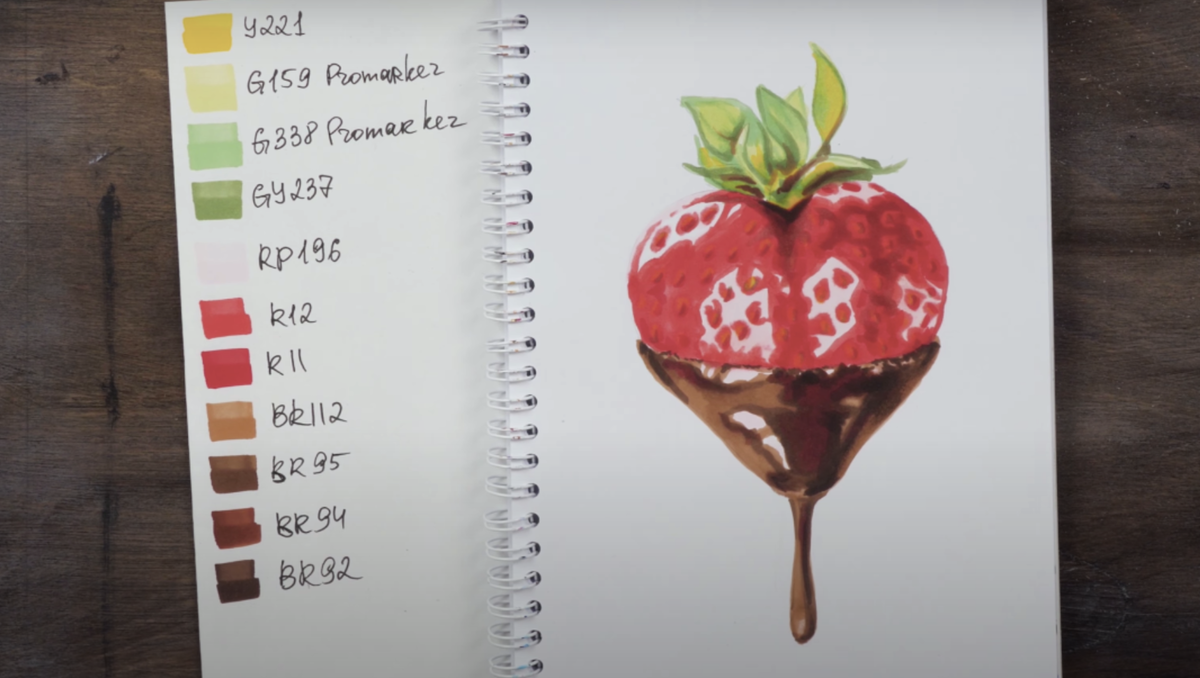 Y221
G159 Promarker
G338 Promarker
GY237
RP196
R12
R11
BR112
BR95
BR94
BR92